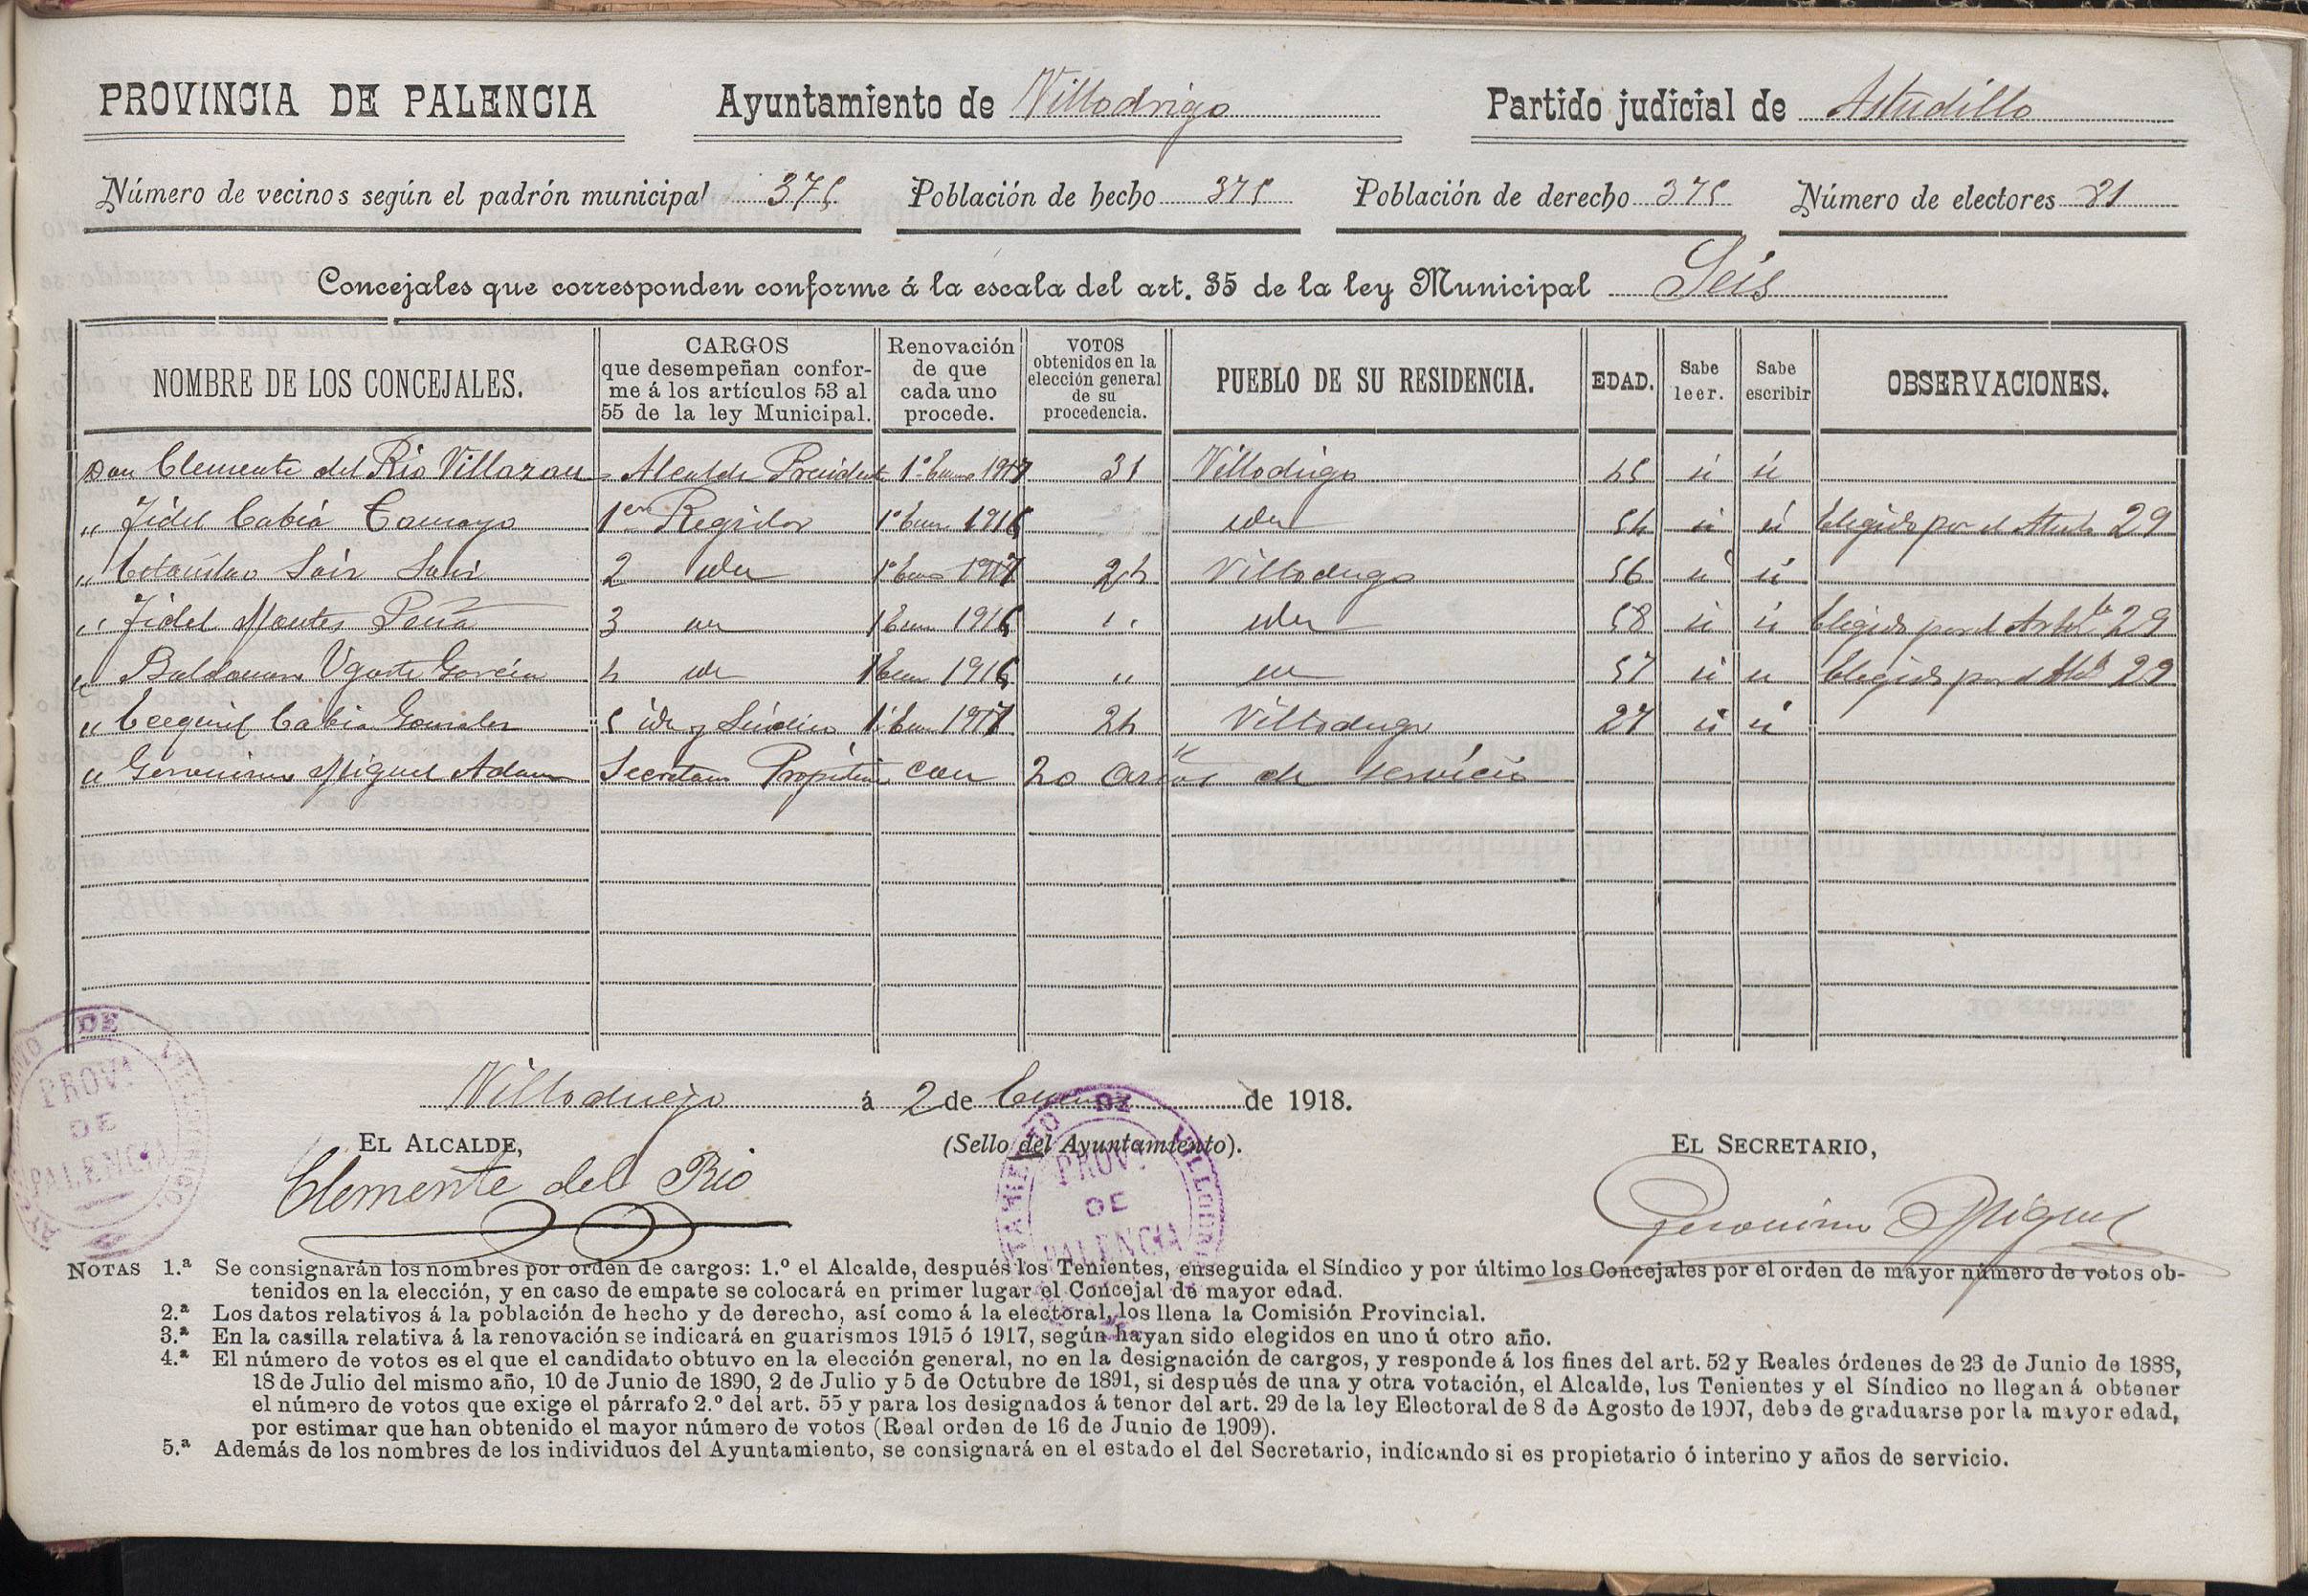 PROVINCIA DE PALENCIA Ayuntamiento de Villodrigo Partido judicial de Astudillo
Número de vecinos según el padrón municipal 375 Población de hecho 375 Población de derecho 375 Número de electores 81
Concejales que corresponden conforme á la escala del art. 35 de la ley Municipal Seis
NOMBRE DE LOS CONCEJALES. CARGOS que desempeñan confor-me á los artículos 53 al 55 de la ley Municipal. Renovación de que cada uno procede. VOTOS obtenidos en la elección general de su procedencia. PUEBLO DE SU RESIDENCIA. EDAD. Sabe leer. Sabe escribir OBSERVACIONES.
Don Clemente del Rio Villazan Alcalde Presidente 1º Enero 1917 31 Villodrigo 45 si si
" Fidel Cabia Tamayo 1er Regidor 1º Enero 1916 iden 54 si si Elegido por el Articulo 29
" Sáiz 2 iden 1º Enero 1917 24 Villodrigo 56 si si
" Fidel Montes Peña 3 iden 1 Enero 1916 " iden 58 si si Elegido por el Art 29
" Ugarte García 4 iden 1 Enero 1916 " iden 57 si si Elegido por el Art 29
" Ecequiel Cabia Gonzalez 5 id y Síndico 1º Enero 1917 24 Villodrigo 27 si si
" Geronimo Miguel Adan Secretario Propietario con 20 años de servicio
Villodrigo á 2 de Enero de 1918.
EL ALCALDE, (Sello del Ayuntamiento). EL SECRETARIO,
Clemente del Rio Geronimo Miguel
AYUNTAMIENTO DE VILLODRIGO
PROVª DE PALENCIA
NOTAS 1.ª Se consignarán los nombres por orden de cargos: 1.º el Alcalde, después los Tenientes, enseguida el Síndico y por último los Concejales por el orden de mayor número de votos ob-
tenidos en la elección, y en caso de empate se colocará en primer lugar el Concejal de mayor edad.
2.ª Los datos relativos á la población de hecho y de derecho, así como á la electoral, los llena la Comisión Provincial.
3.ª En la casilla relativa á la renovación se indicará en guarismos 1915 ó 1917, según hayan sido elegidos en uno ú otro año.
4.ª El número de votos es el que el candidato obtuvo en la elección general, no en la designación de cargos, y responde á los fines del art. 52 y Reales órdenes de 23 de Junio de 1888,
18 de Julio del mismo año, 10 de Junio de 1890, 2 de Julio y 5 de Octubre de 1891, si después de una y otra votación, el Alcalde, los Tenientes y el Síndico no llegan á obtener
el número de votos que exige el párrafo 2.º del art. 55 y para los designados á tenor del art. 29 de la ley Electoral de 8 de Agosto de 1907, debe de graduarse por la mayor edad,
por estimar que han obtenido el mayor número de votos (Real orden de 16 de Junio de 1909).
5.ª Además de los nombres de los individuos del Ayuntamiento, se consignará en el estado el del Secretario, indicando si es propietario ó interino y años de servicio.